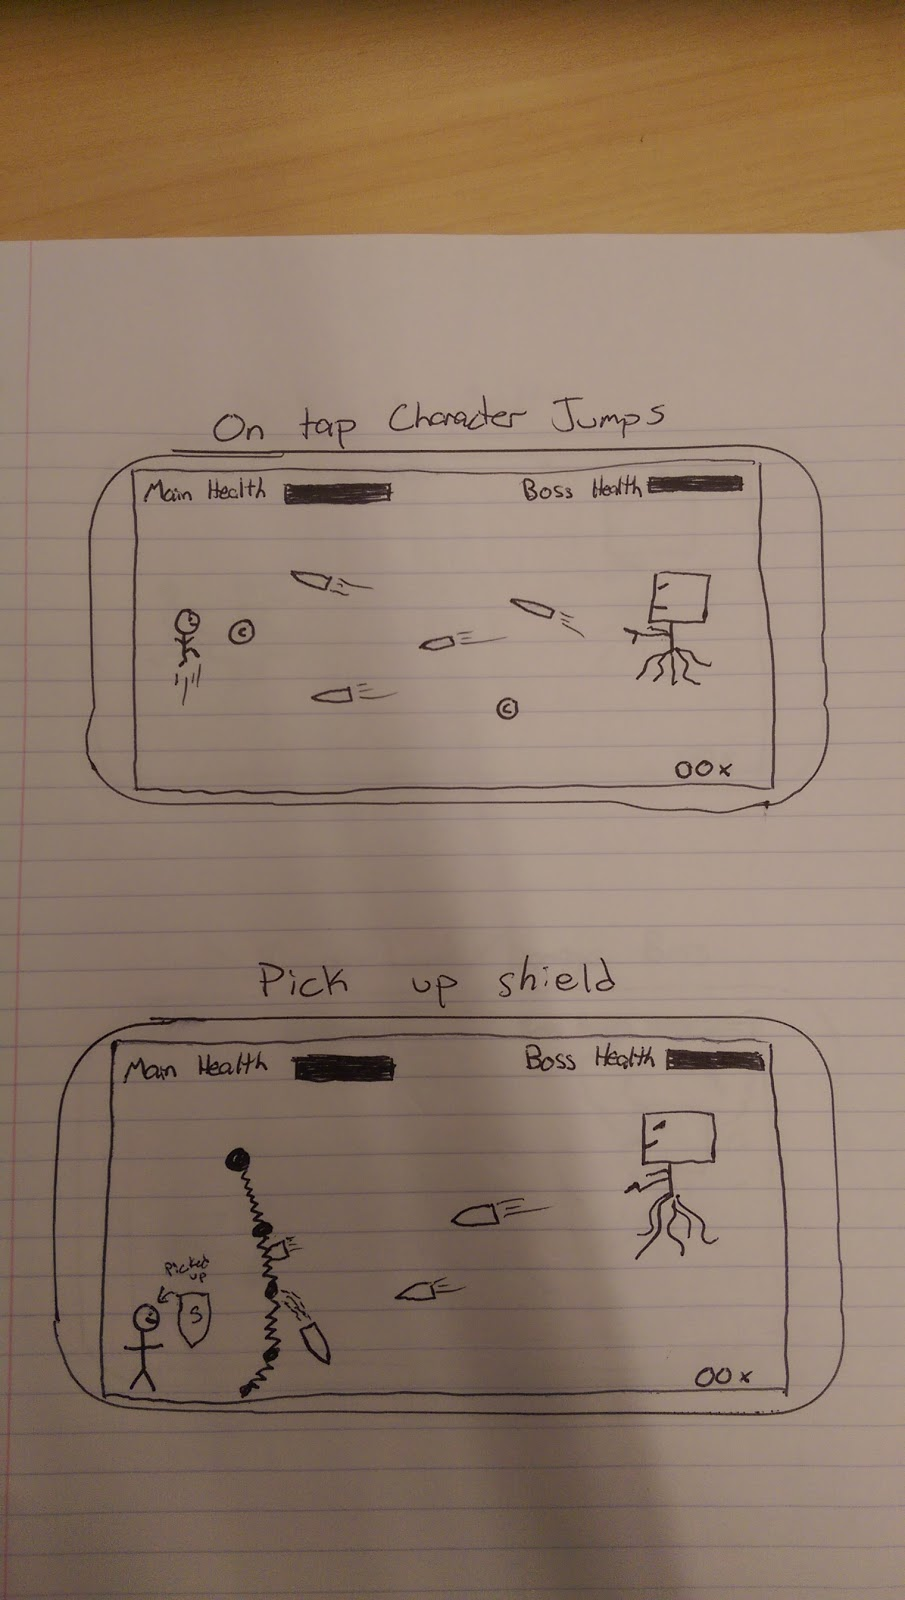 On tap Character Jumps
Main Health Boss Health
C
C
00x
Pick up shield
Main Health Boss Health
Picked
up
S
00x